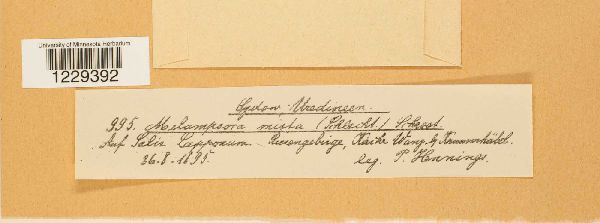 University of Minnesota Herbarium
1229392
Sydow, Uredineen.
995. Melampsora mixta (Schlecht.) Schroet.
Auf Salix Lapponum. Riesengebirge, Kleine Wang. b. Krummhübel.
26.8.1895. leg. P. Hennings.